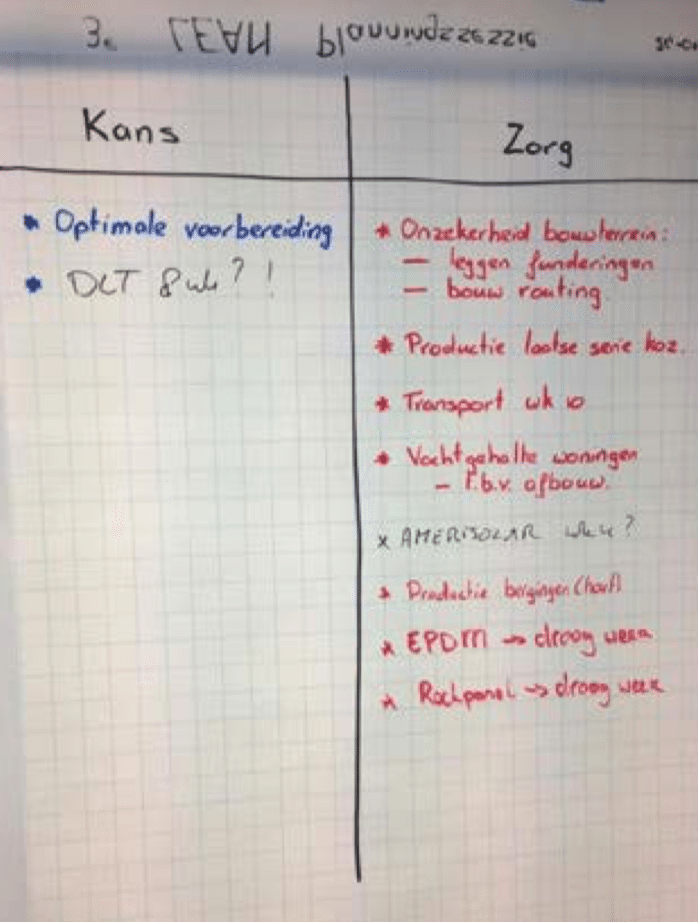 3e LEAN planningssessie
Kans
Zorg
Optimale voorbereiding
DLT 8 wk?!
* Onzekerheid bouwterrein:
— leggen funderingen
— bouw routing
* Productie laatse serie koz.
* Transport wk 10
* Vochtgehalte woningen
- t.b.v. afbouw.
x AMERISOLAR wk 4?
* Productie bergingen (hout)
* EPDM → droog weer
* Rockpanel → droog weer